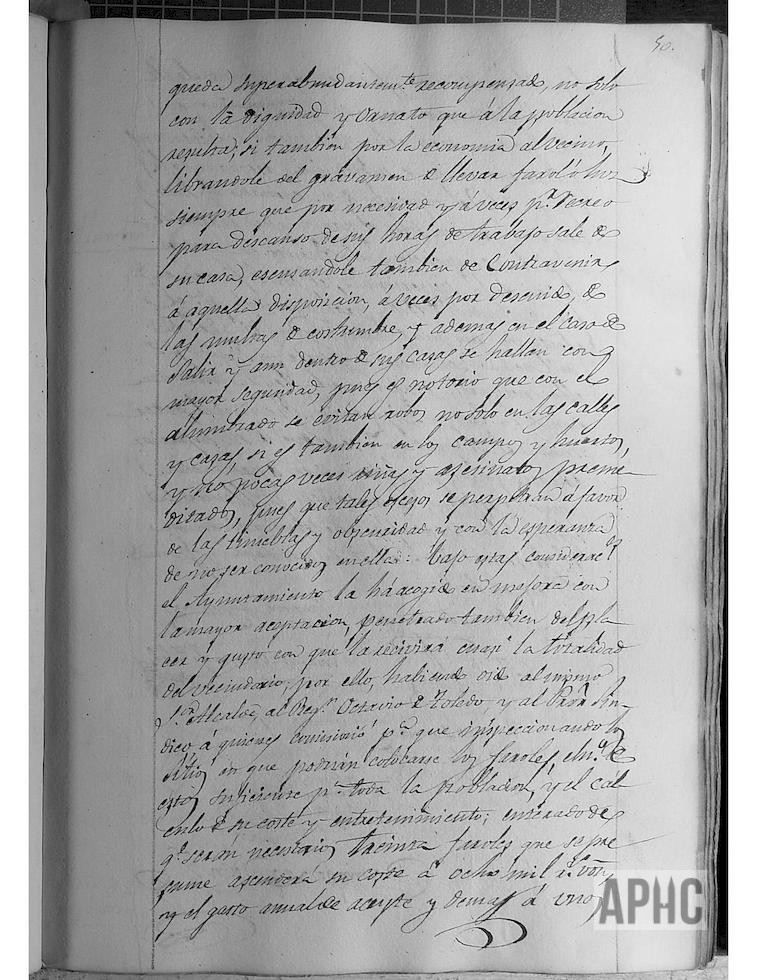 50.
queda superabundantemte. recompensado, no solo
con la dignidad y ornato que á la poblacion
resulta, si tambien por la economia al vecino,
librandole del grávamen de llevar farol ó luz
siempre que por necesidad y á veces pr. recreo
para descanso de sus horas de trabajo sale de
su casa, escusandole tambien de contravenir
á aquella disposicion, á veces por descuido, de
las multas de costumbre, y ademas en el caso de
salir y aun dentro de sus casas se hallan con
mayor seguridad, pues es notorio que con el
alumbrado se evitan robos no solo en las calles
y casas si es tambien en los campos y huertos,
y no pocas veces riñas y asesinatos preme
ditados, pues que tales escesos se perpetran á favor
de las tinieblas y obscuridad y con la esperanza
de no ser conocidos en ellas: bajo estas considerac.s
el Ayuntamiento la há acogido en mejora con
la mayor aceptacion, penetrado tambien del pla
cer y gusto con que la recivirá cuasi la totalidad
del vecindario, por ello, habiendo oido al mismo
Sr. Alcalde, al Regr. Octavio de Toledo y al Pror. Sin
dico á quienes comisionó pa. que inspeccionando los
sitios en que podrian colocarse los faroles, el no. de
estos suficiente pa. toda la poblacion, y el cal
culo de su coste y entretenimiento; enterado de
qe. seran necesarios treinta faroles que se pre
sume ascenderá su coste á ocho mil rs. von.
y el gasto anual de aceyte y demas á unos
APHC